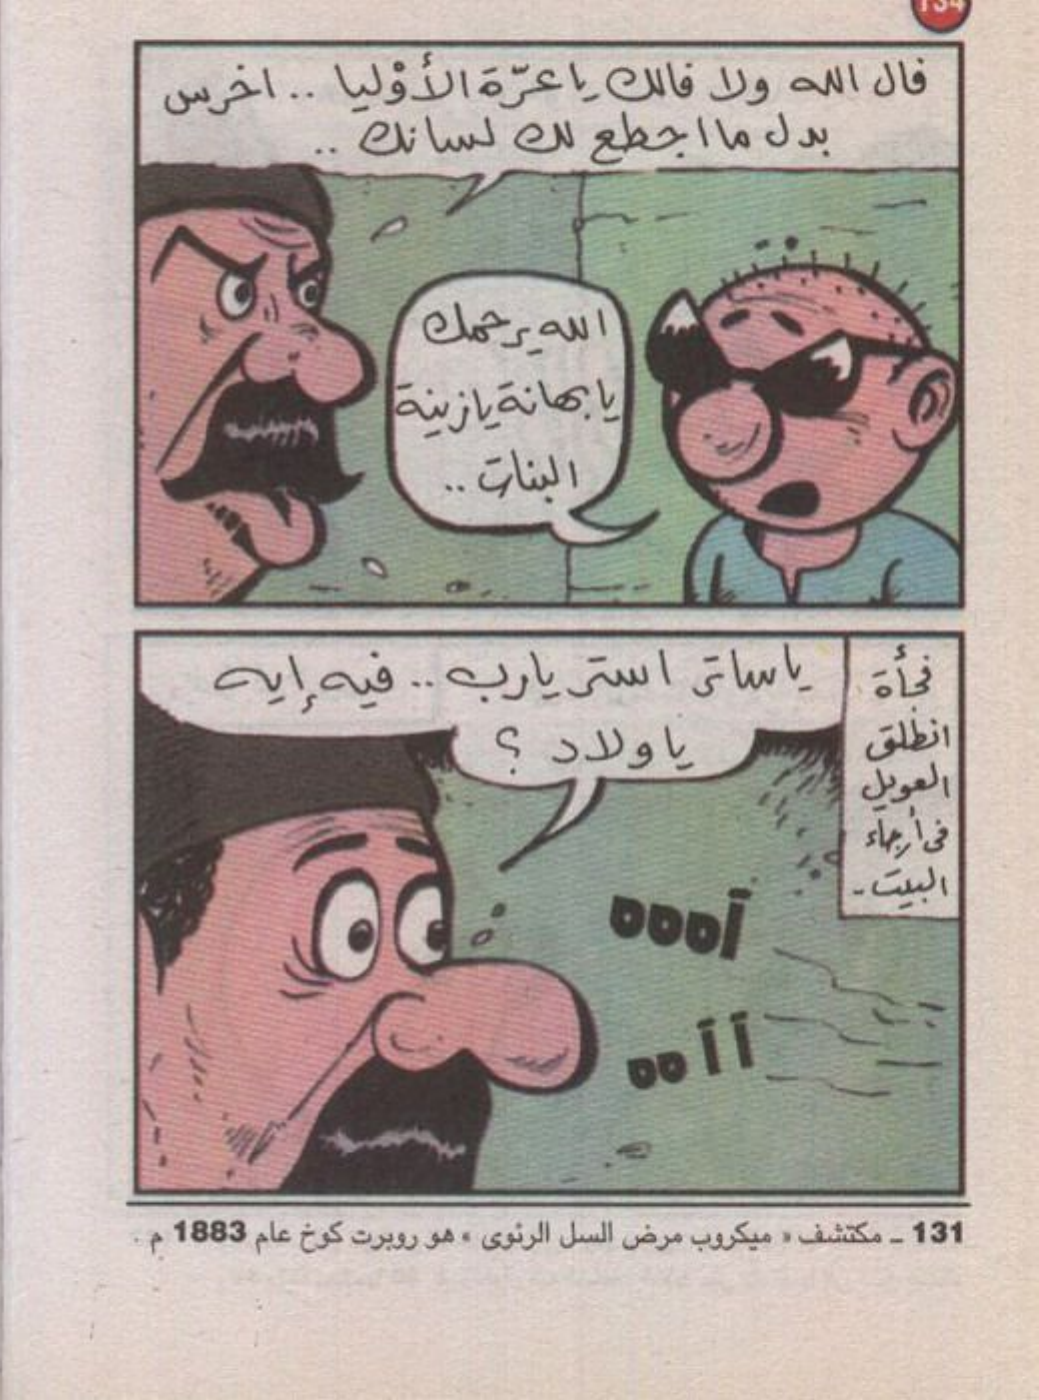 134
فال الله ولا فالك يا عرّة الأوْليا .. اخرس
بدل ما اجطع لك لسانك ..
الله يرحمك
يا بهانة يا زينة
البنات ..
فجأة
انطلق
العويل
فى أرجاء
البيت -
يا ساتر استر يارب .. فيه إيه
يا ولاد ؟
آههه
آ آ هه
131 ــ مكتشف « ميكروب مرض السل الرئوى » هو روبرت كوخ عام 1883 م .